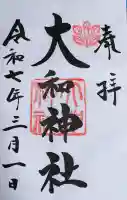 奉拝
大和神社
令和七年三月一日